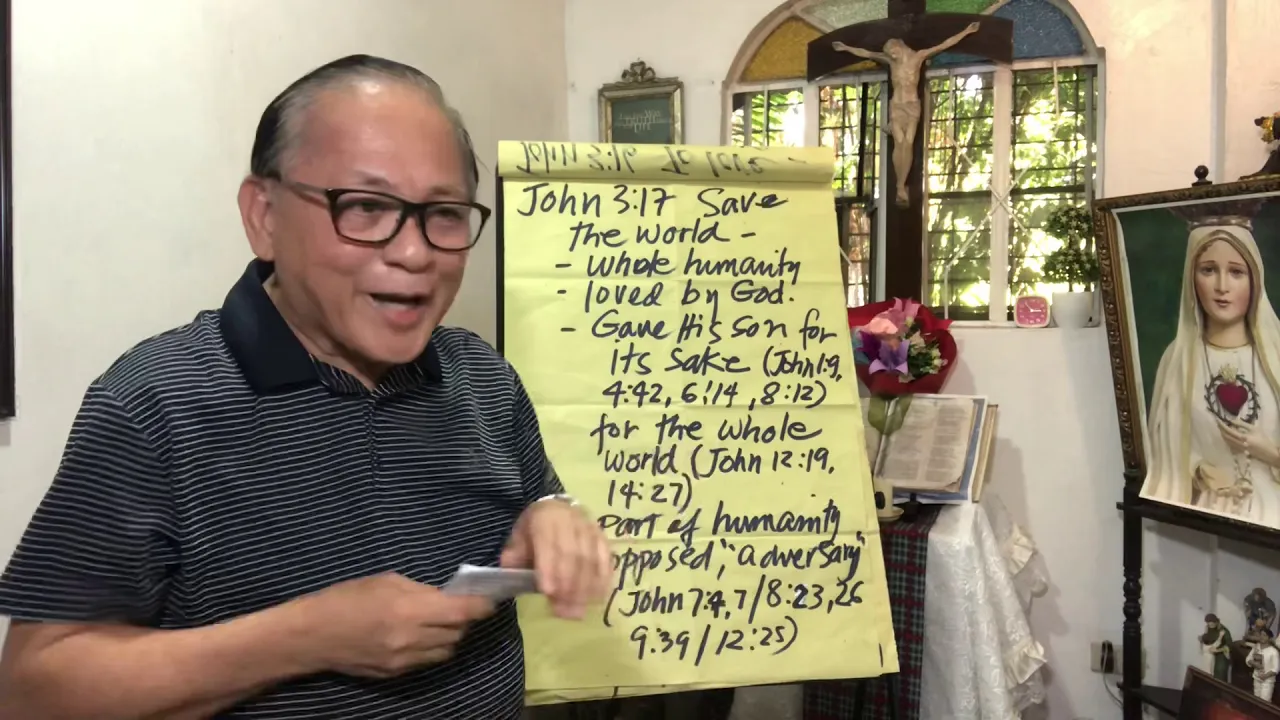 John 3:16 To love -
John 3:17 Save
the world -
- whole humanity
- loved by God.
- Gave His son for
Its sake (John 1:9,
4:42, 6:14, 8:12)
for the whole
world (John 12:19,
14:27)
part of humanity
opposed, "adversary"
(John 7:4,7/8:23,26
9:39/12:25)